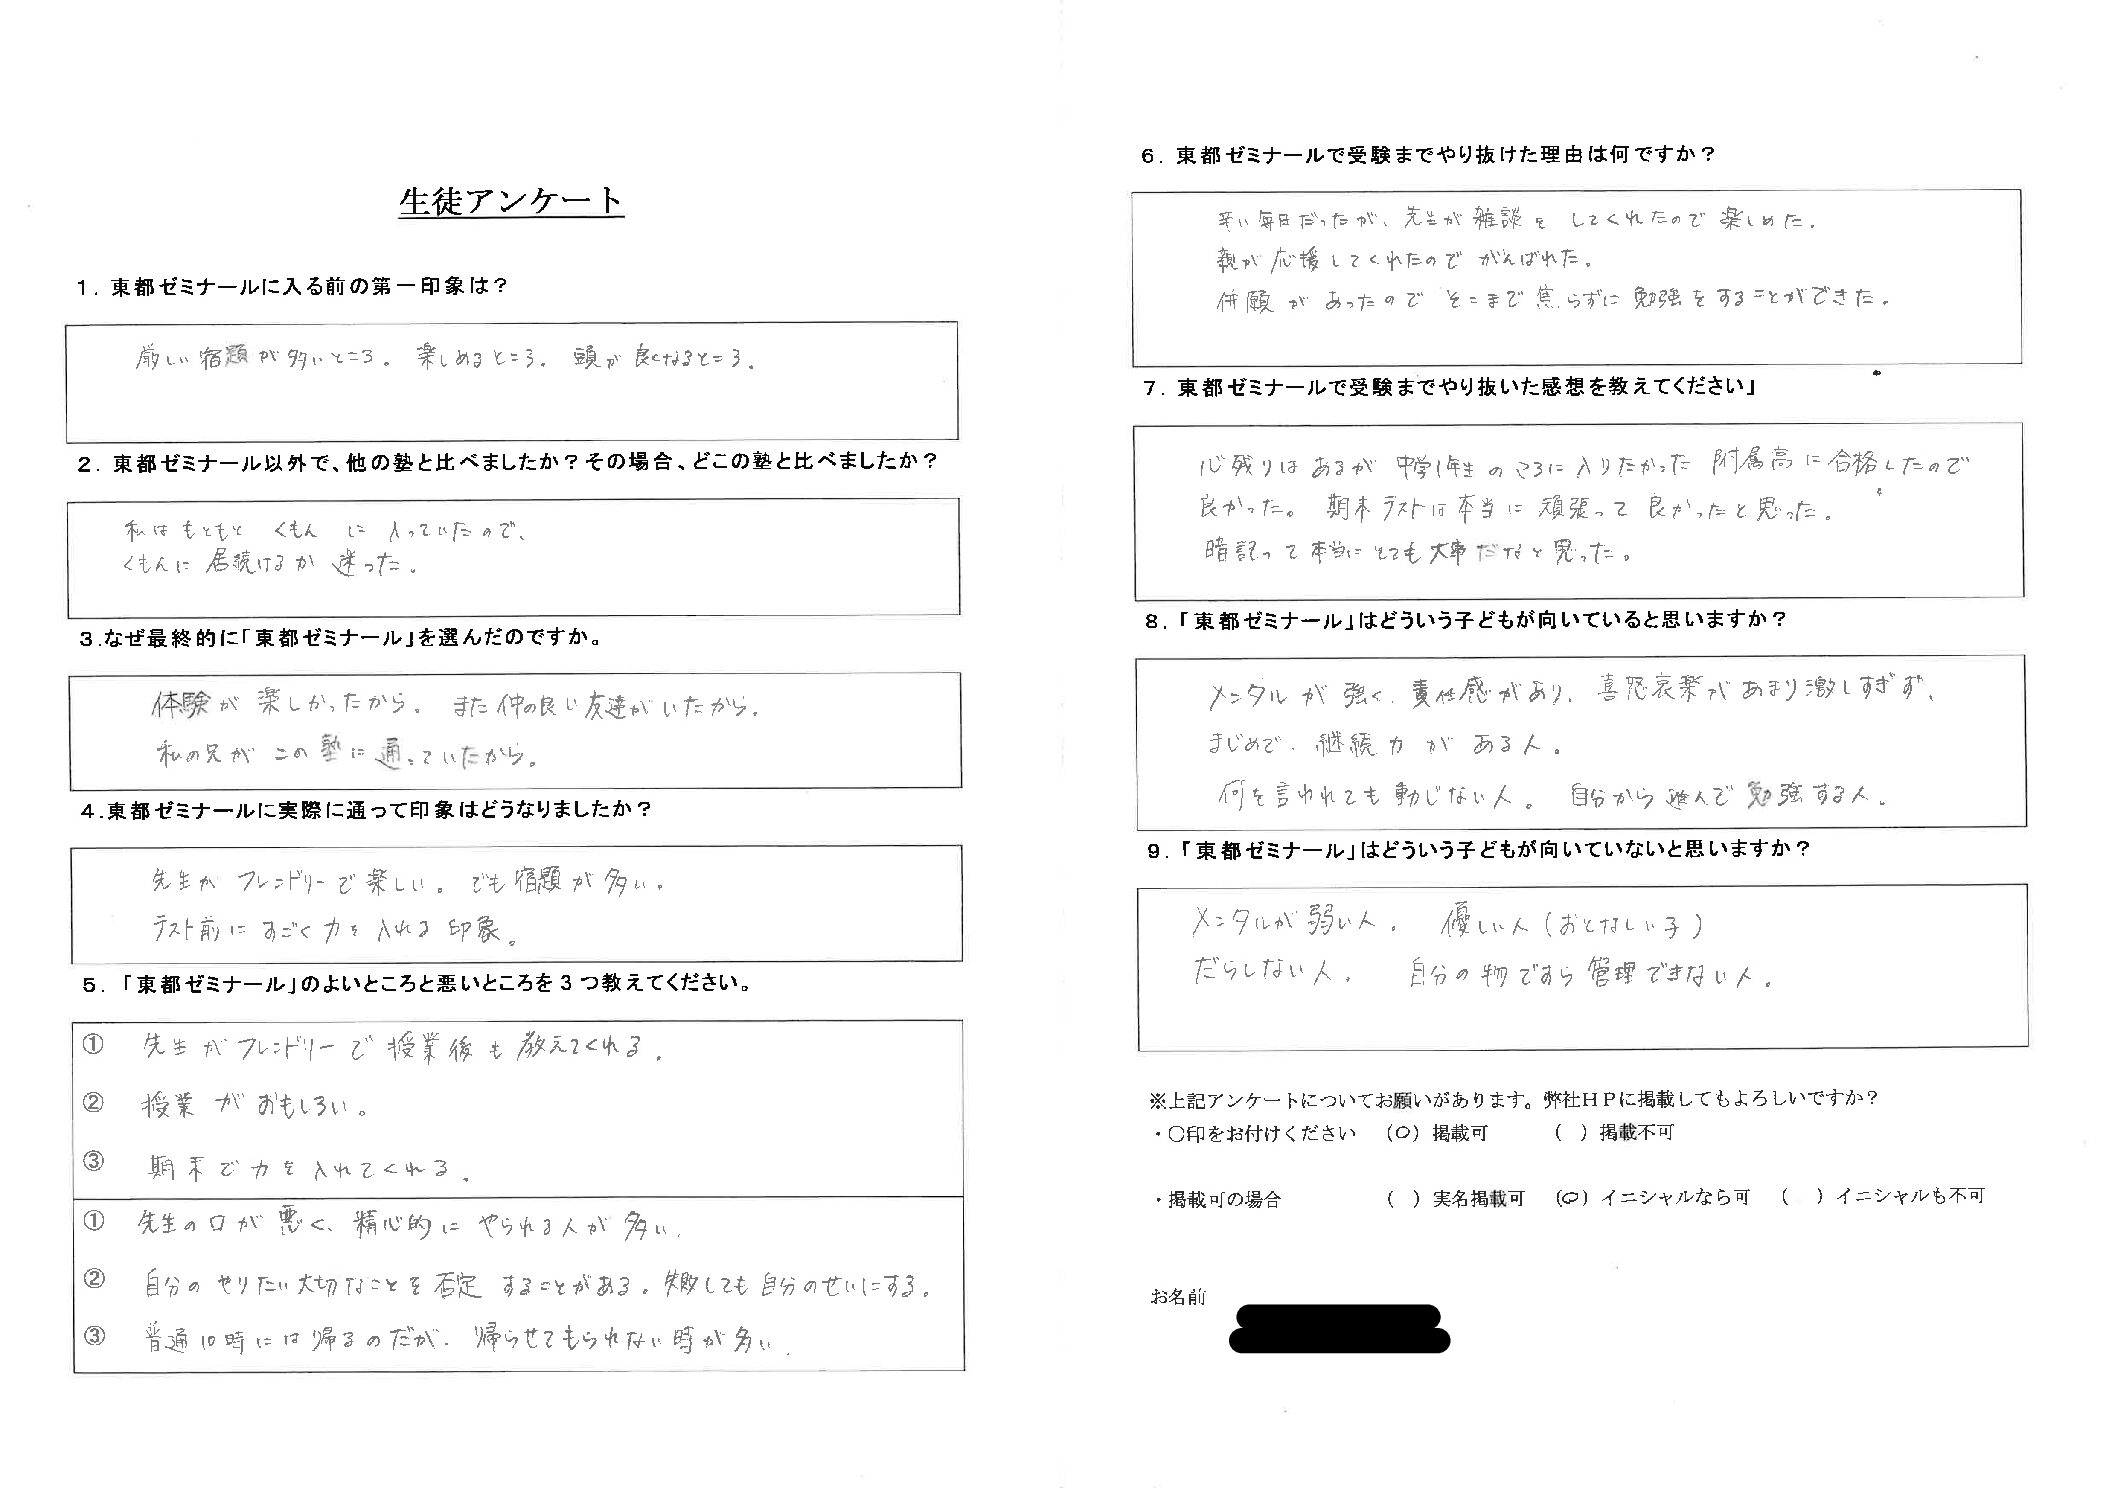 生徒アンケート
1. 東都ゼミナールに入る前の第一印象は？
厳しい宿題が多いところ。楽しめるところ。頭が良くなるところ。
2. 東都ゼミナール以外で、他の塾と比べましたか？その場合、どこの塾と比べましたか？
私はもともと くもん に 入っていたので、
くもんに 居続けるか 迷った。
3.なぜ最終的に「東都ゼミナール」を選んだのですか。
体験が楽しかったから。また仲の良い友達がいたから。
私の兄がこの塾に通っていたから。
4.東都ゼミナールに実際に通って印象はどうなりましたか？
先生がフレンドリーで楽しい。でも宿題が多い。
テスト前にすごく力を入れる印象。
5. 「東都ゼミナール」のよいところと悪いところを3つ教えてください。
① 先生がフレンドリーで授業後も教えてくれる。
② 授業がおもしろい。
③ 期末で力を入れてくれる。
① 先生の口が悪く、精心的にやられる人が多い。
② 自分のやりたい大切なことを否定することがある。失敗しても自分のせいにする。
③ 普通10時には帰るのだが、帰らせてもられない時が多い。
6. 東都ゼミナールで受験までやり抜けた理由は何ですか？
辛い毎日だったが、先生が雑談をしてくれたので楽しめた。
親が応援してくれたのでがんばれた。
併願があったのでそこまで焦らずに勉強をすることができた。
7. 東都ゼミナールで受験までやり抜いた感想を教えてください」
心残りはあるが中学1年生のころに入りたかった附属高に合格したので
良かった。期末テストは本当に頑張って良かったと思った。
暗記って本当にとても大事だなと思った。
8.「東都ゼミナール」はどういう子どもが向いていると思いますか？
メンタルが強く、責任感があり、喜怒哀楽があまり激しすぎず、
まじめで、継続力がある人。
何を言われても動じない人。自分から進んで勉強する人。
9.「東都ゼミナール」はどういう子どもが向いていないと思いますか？
メンタルが弱い人。優しい人(おとなしい子)
だらしない人。自分の物ですら管理できない人。
※上記アンケートについてお願いがあります。弊社HPに掲載してもよろしいですか？
・〇印をお付けください (〇) 掲載可 ( ) 掲載不可
・掲載可の場合 ( ) 実名掲載可 (〇) イニシャルなら可 ( ) イニシャルも不可
お名前